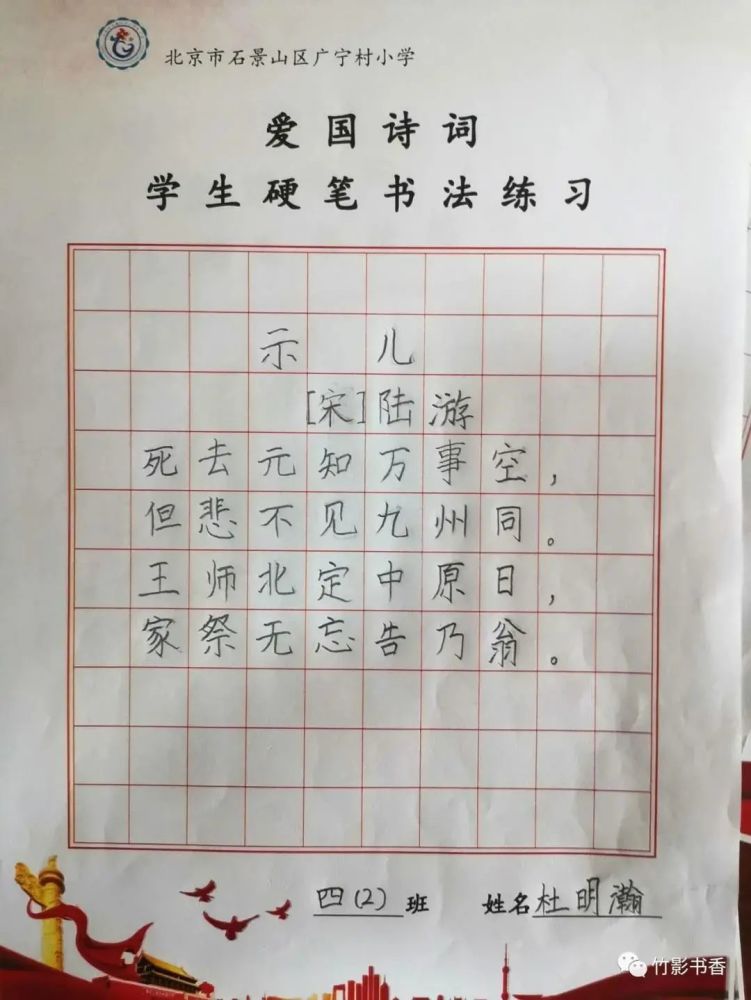 北京市石景山区广宁村小学
爱国诗词
学生硬笔书法练习
示 儿
[宋]陆游
死去元知万事空，
但悲不见九州同。
王师北定中原日，
家祭无忘告乃翁。
四(2)班 姓名杜明瀚
竹影书香